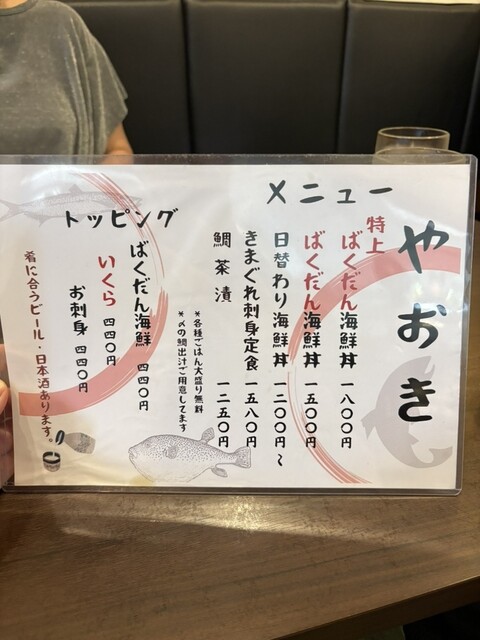 やおき
メニュー
特上
ばくだん海鮮丼 一八〇〇円
ばくだん海鮮丼 一五〇〇円
日替わり海鮮丼 一二〇〇円〜
きまぐれ刺身定食 一五八〇円
鯛茶漬 一二五〇円
*各種ごはん大盛り無料
*〆の鯛出汁ご用意してます
トッピング
ばくだん海鮮 四四〇円
いくら 四四〇円
お刺身 四四〇円
肴に合うビール・日本酒あります。